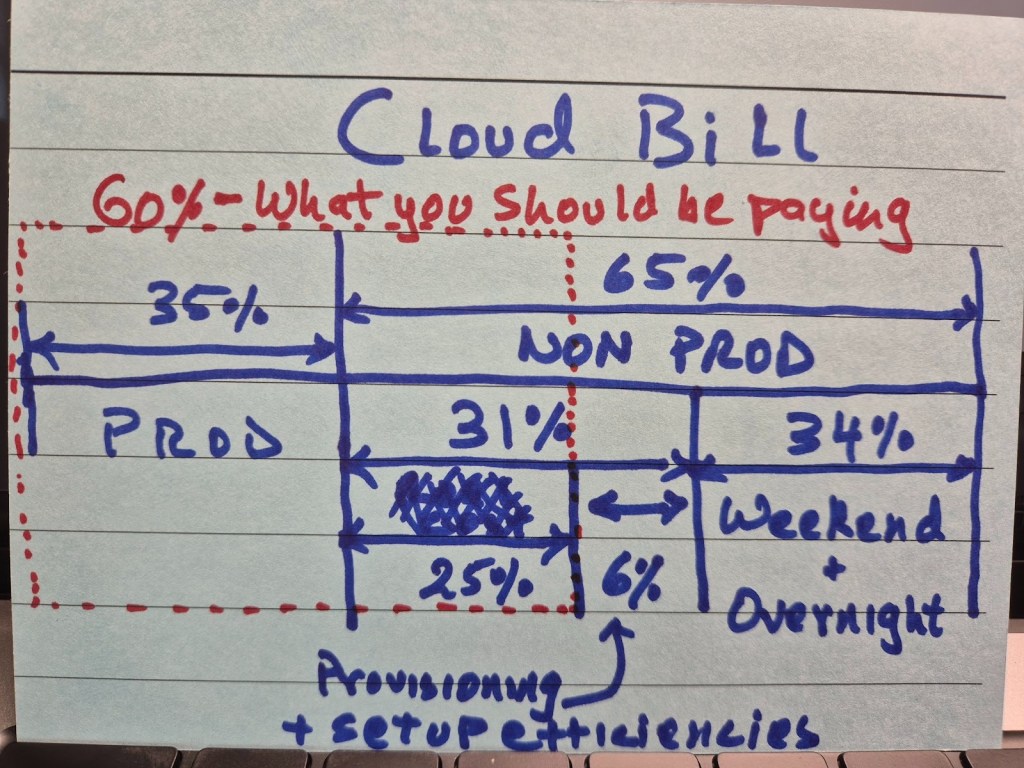 Cloud Bill
60% - What you should be paying
35%
65%
NON PROD
PROD
31%
34%
Weekend
+
Overnight
25%
6%
Provisioning
+ setup efficiencies